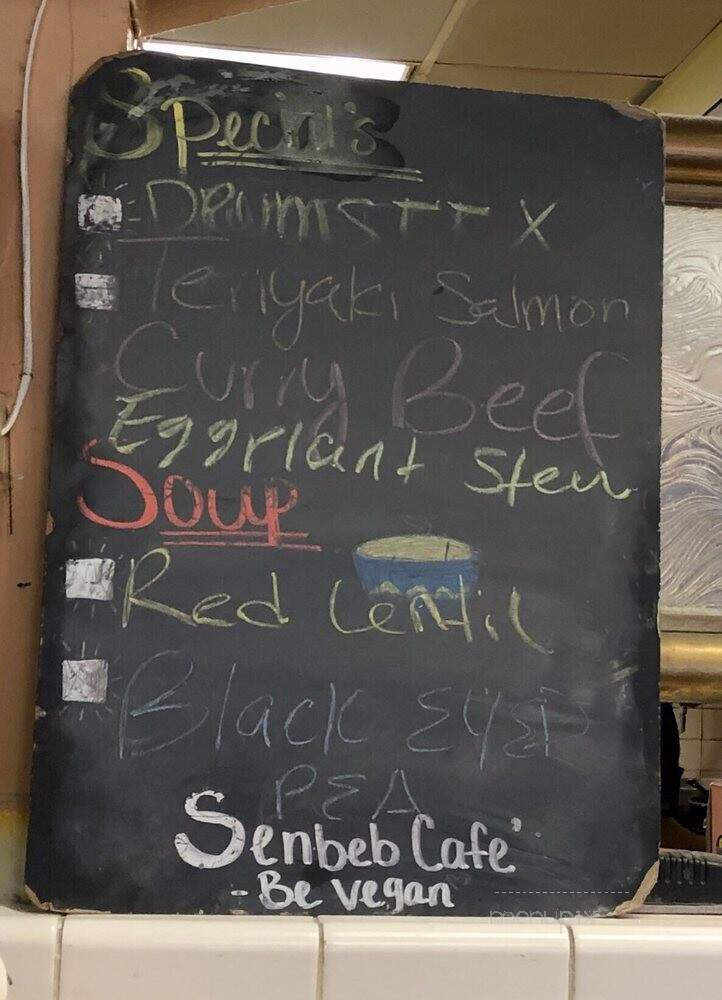 Special's
DRUMSTIX
Teriyaki Salmon
Curry Beef
Eggplant Stew
Soup
Red Lentil
Black ΣYΣD
PΣA
Senbeb Cafe'
- Be vegan
menupix